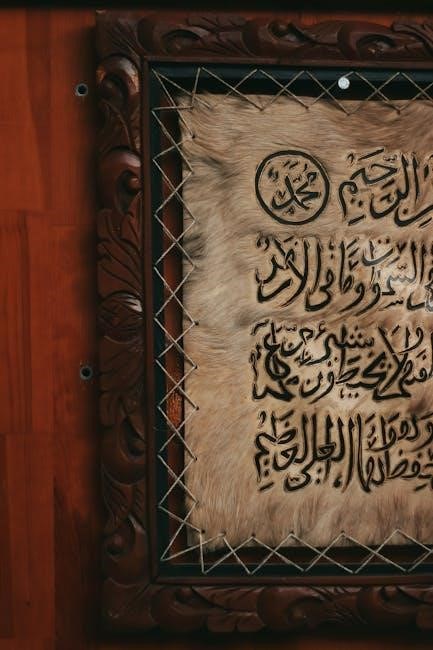 الرحيم محمد
السموات وما في الارض
ولا يحيطون بشئ من علمه
حفظهما وهو العلي العظيم